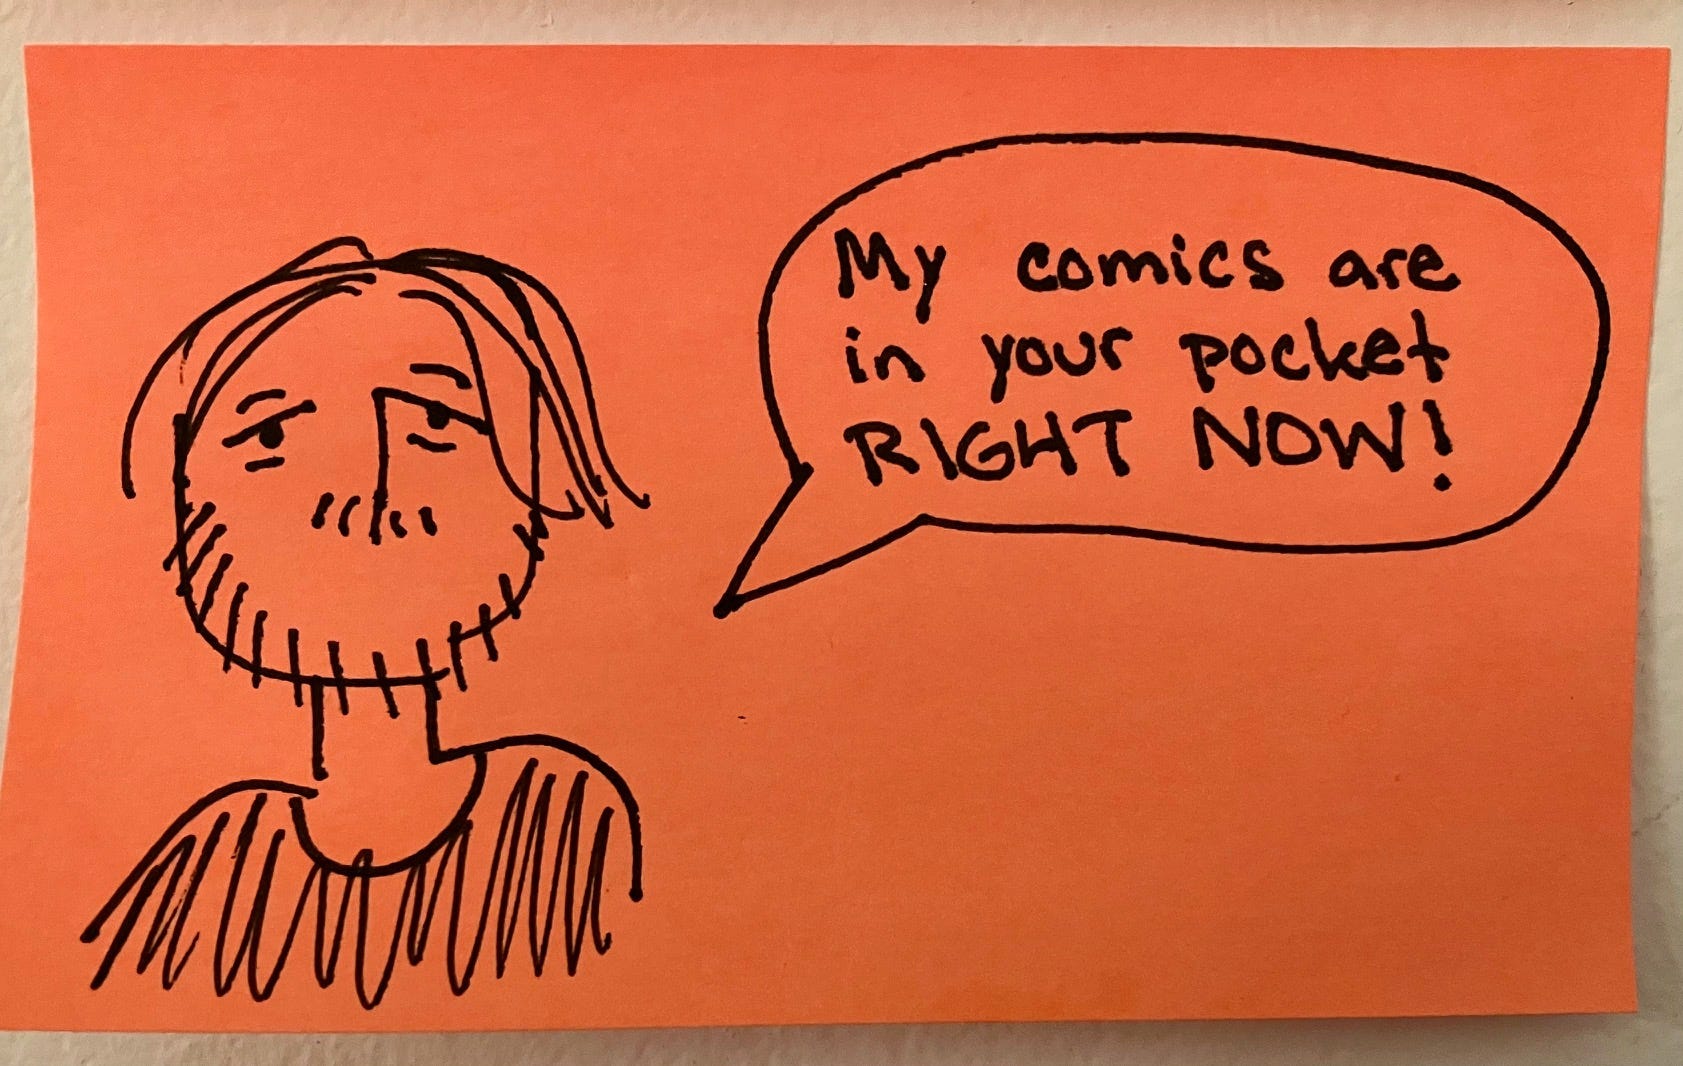 My comics are
in your pocket
RIGHT NOW!